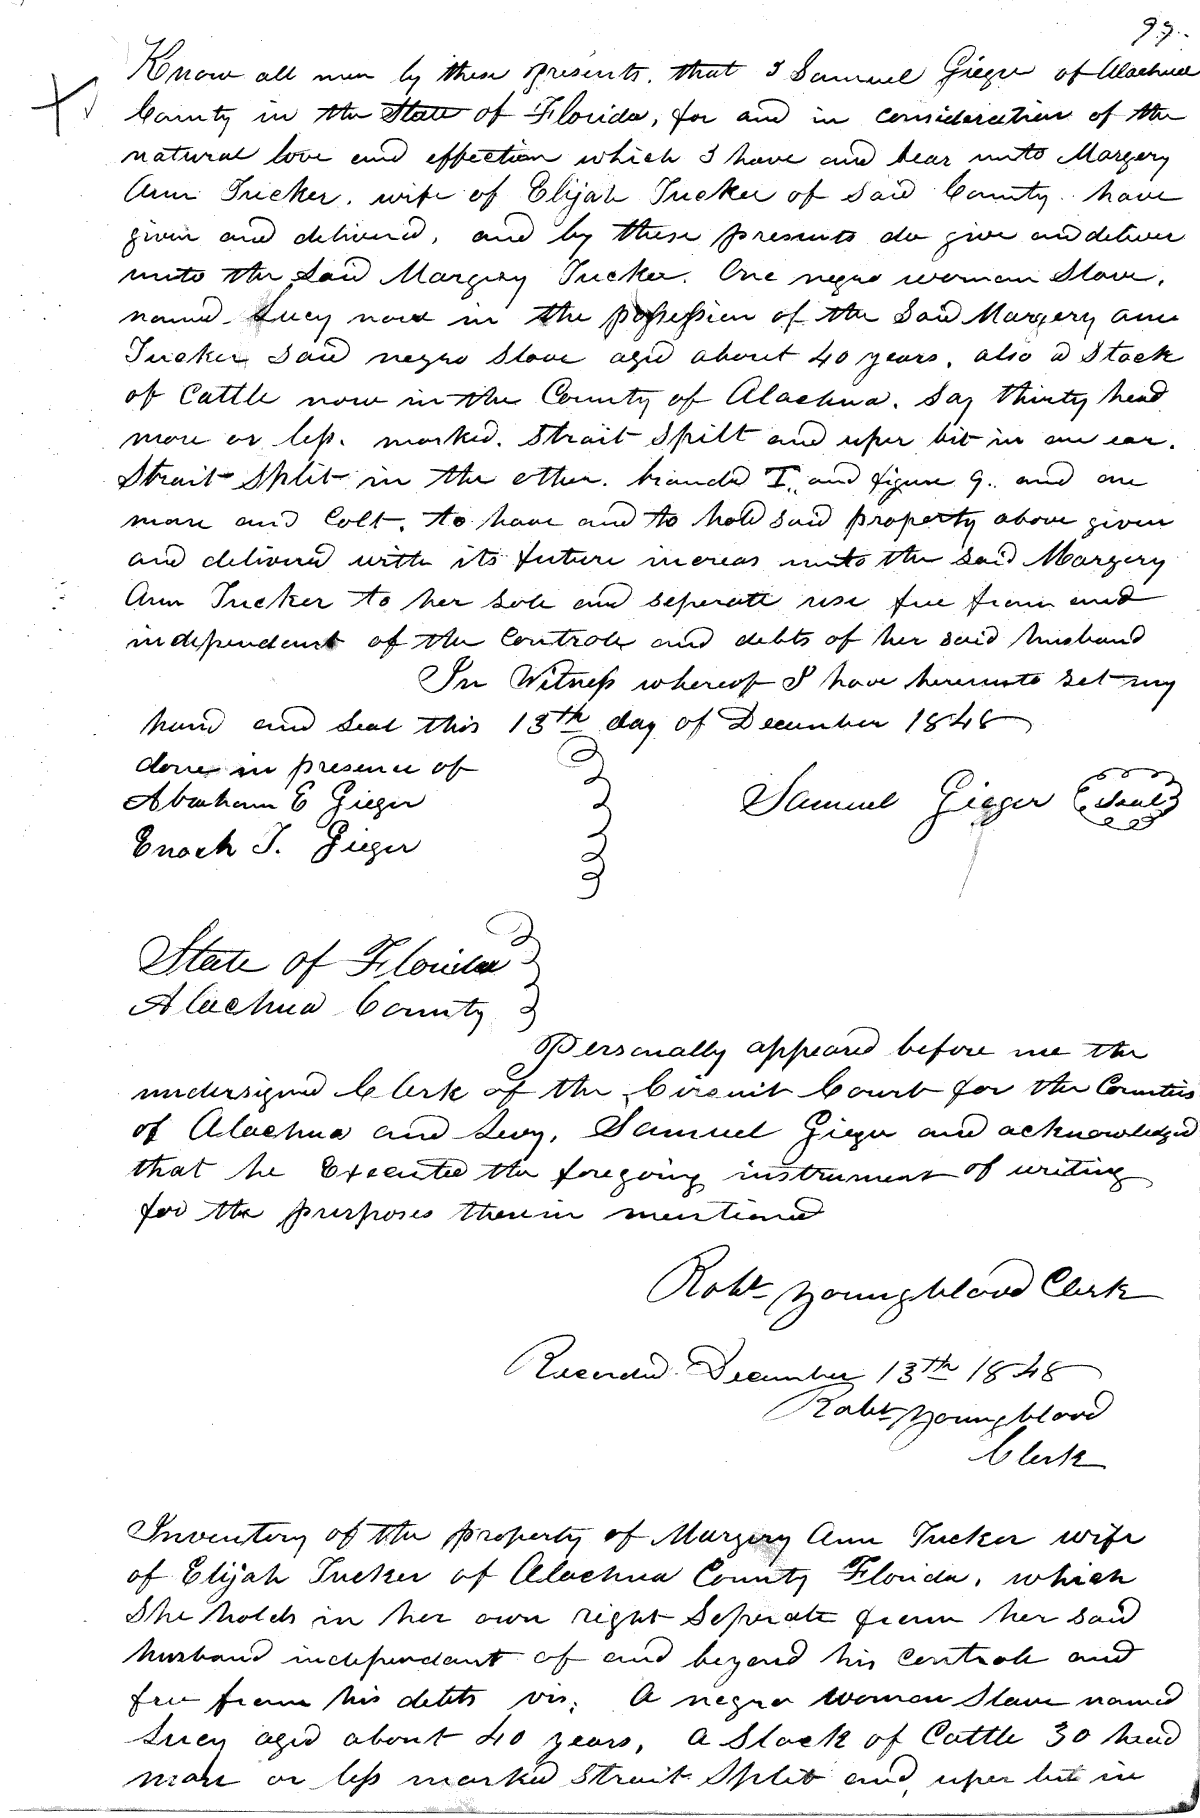 99.
Know all men by these presents, that I Samuel Gieger of Alachua
County in the State of Florida, for and in consideration of the
natural love and effection which I have and bear unto Margery
Ann Tucker, wife of Elijah Tucker of said County have
given and delivered, and by these presents do give and deliver
unto the said Margery Tucker. One negro woman Slave,
named Lucy now in the possession of the said Margery ann
Tucker said negro Slave aged about 40 years, also a Stock
of Cattle now in the County of Alachua, say thirty head
more or less, marked, Strait Spilt and uper bit in one ear,
Strait Split in the other. branded I, and figure 9. and one
mare and Colt, to have and to hold said property above given
and delivered with its future increas unto the said Margery
Ann Tucker to her sole and seperate use free from and
independant of the Controle and debts of her said husband
In Witness whereof I have hereunto set my
hand and seal this 13th day of December 1848
done in presence of
Abraham E Gieger
Samuel Gieger Seal
Enoch J. Gieger
State of Florida
Alachua County
Personally appeared before me the
undersigned Clerk of the Circuit Court for the Counties
of Alachua and Levy, Samuel Gieger and acknowledged
that he Executed the foregoing instrument of writing
for the purposes therein mentioned
Robt Youngblood Clerk
Recorded December 13th 1848
Robt Youngblood
Clerk
Inventory of the property of Margery Ann Tucker wife
of Elijah Tucker of Alachua County Florida, which
She holds in her own right Seperate from her said
husband independant of and beyond his Controle and
free from his debts vis; A negro woman Slave named
Lucy aged about 40 years, a Stock of Cattle 30 head
more or less marked Strait Split and uper bit in